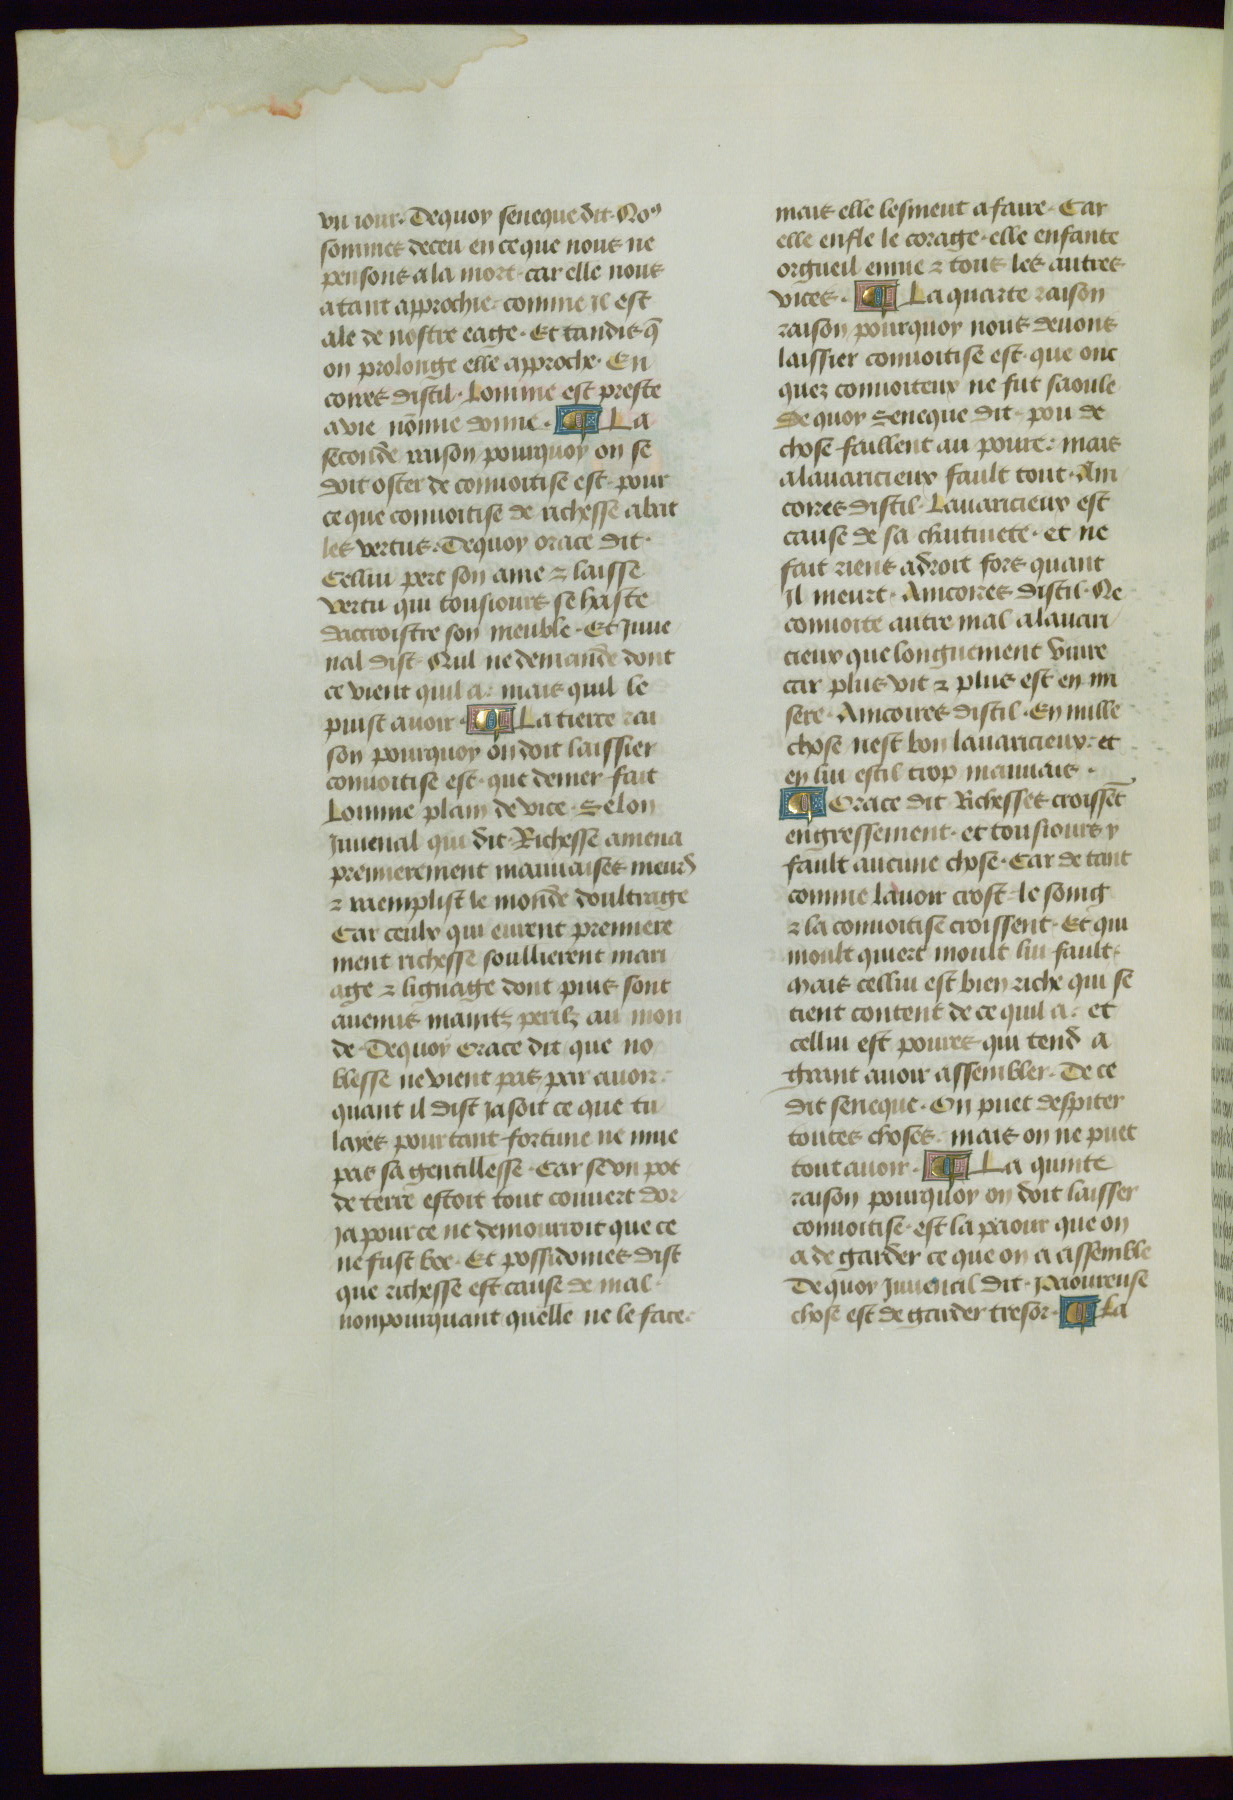 vn iour. Dequoy seneque dit. No9
sommes deceu en ce que nous ne
pensons a la mort. car elle nous
a tant approchie. comme il est
ale de nostre eage. Et tandis q̄
on prolonge elle approche. En
cores dist il. Lomme est preste
a vie nōmie donne. ¶ La
seconde raison pourquoy on se
doit oster de conuoitise est. pour
ce que conuoitise de richesse abat
les vertus. Dequoy orace dit.
Cellui pert son ame ⁊ laisse
vertu qui tousiours se haste
daccroistre son meuble. Et Juue
nal dist. Nul ne demande dont
ce vient quil a. mais quil le
puist auoir. ¶ La tierce rai
son pourquoy on doit laissier
conuoitise est. que denier fait
Lomme plain de vice. Selon
Juuenal qui dit. Richesse amena
premierement mauuaises meurs
⁊ raemplist le monde doultrage
Car ceulx qui eurent premiere
ment richesse soullierent mari
age ⁊ lignage dont puis sont
auenus maintz perilz au mon
de. Dequoy Orace dit que no
blesse ne vient pas par auoir.
quant il dist Jasoit ce que tu
layes pour tant fortune ne mue
pas sa gentillesse. Car se vn pot
de terre estoit tout couuert dor
Ja pour ce ne demourroit que ce
ne fust boe. Et possidomes dist
que richesse est cause de mal.
non pourquant quelle ne le face.
mais elle lesment a faire. Car
elle enfle le corage. elle enfante
orgueil enuie ⁊ tous les autres
vices. ¶ La quarte raison
raison pourquoy nous deuons
laissier conuoitise est. que onc
quez conuoiteux ne fut saoule
De quoy Seneque dit. pou de
chose faillent au poure. mais
a lauaricieux fault tout. Ain
cores dist il. Lauaricieux est
cause de sa chitiuete. et ne
fait riens a droit fors quant
Il meurt. Aincores dist il. Ne
conuoite autre mal a lauari
cieux que longuement viure
car plus vit ⁊ plus est en mi
sere. Aincoires dist il. En mille
chose nest bon lauaricieux. et
en lui est il trop mauuais.
¶ Orace dit Richesses croissēt
engressement. et tousiours y
fault aucune chose. Car de tant
comme lauoir croist. le soing
⁊ la conuoitise croissent. Et qui
moult quiert moult lui fault.
Mais cellui est bien riche qui se
tient content de ce quil a. et
cellui est poures qui tend a
grant auoir assembler. De ce
dit seneque. On puet despiter
toutes choses. mais on ne puet
tout auoir. ¶ La quinte
raison pourquoy on doit laisser
conuoitise. est la paour que on
a de garder ce que on a assemble
De quoy Juuenal dit. Paoureuse
chose est de garder tresor. ¶ La